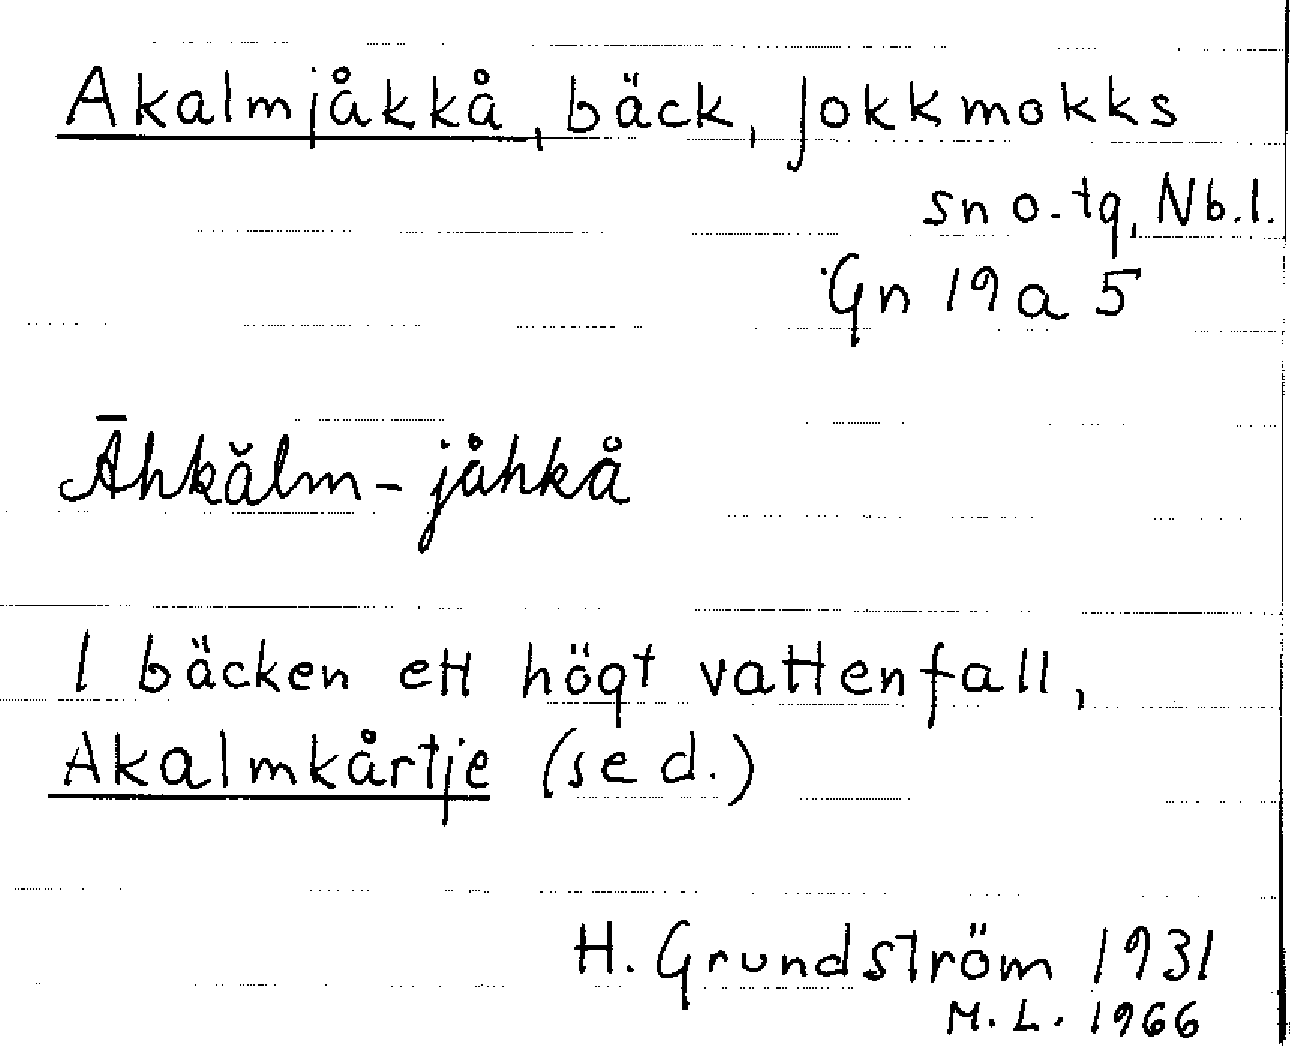 Akalmjåkkå, bäck, Jokkmokks
sn o. tg, Nb.l.
Gn 19 a 5
Āhkălm-jåhkå
I bäcken ett högt vattenfall,
Akalmkårtje (se d.)
H. Grundström 1931
M.L. 1966